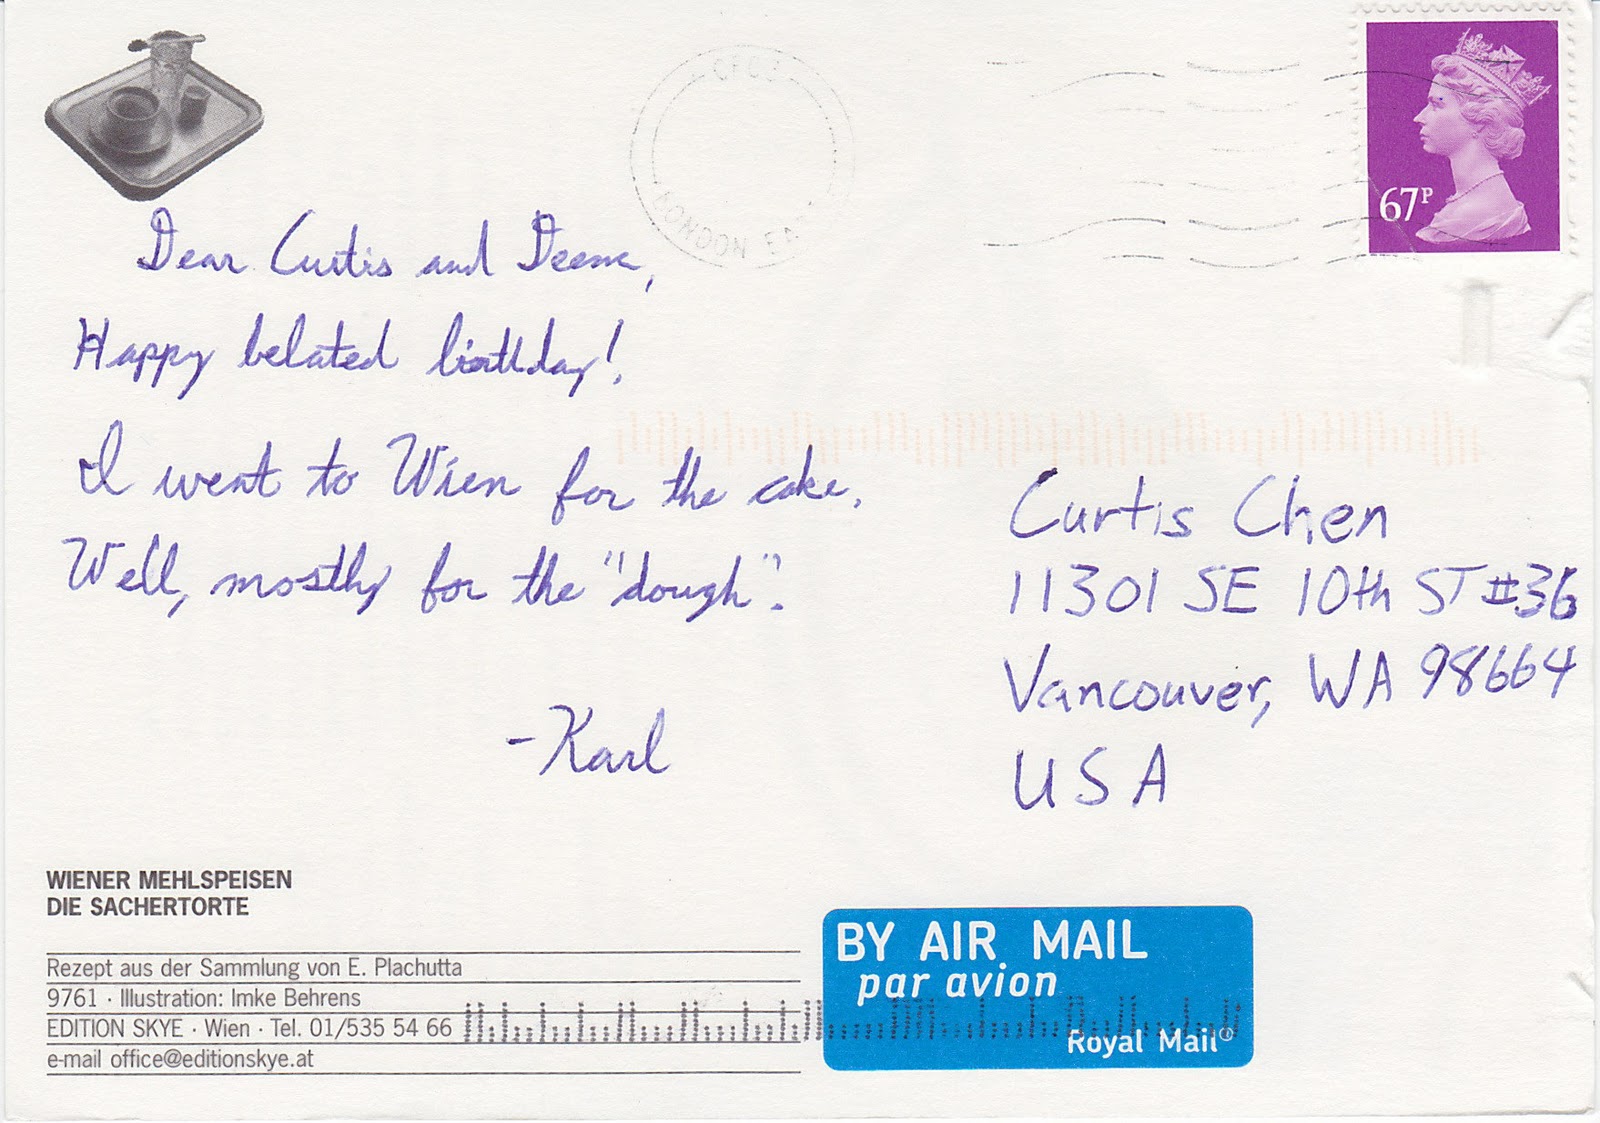 67P
CFC3
LONDON EA
Dear Curtis and Deena,
Happy belated birthday!
I went to Wien for the cake.
Well, mostly for the "dough".
-Karl
Curtis Chen
11301 SE 10th ST #36
Vancouver, WA 98664
USA
WIENER MEHLSPEISEN
DIE SACHERTORTE
Rezept aus der Sammlung von E. Plachutta
9761 · Illustration: Imke Behrens
EDITION SKYE · Wien · Tel. 01/535 54 66
e-mail office@editionskye.at
BY AIR MAIL
par avion
Royal Mail®